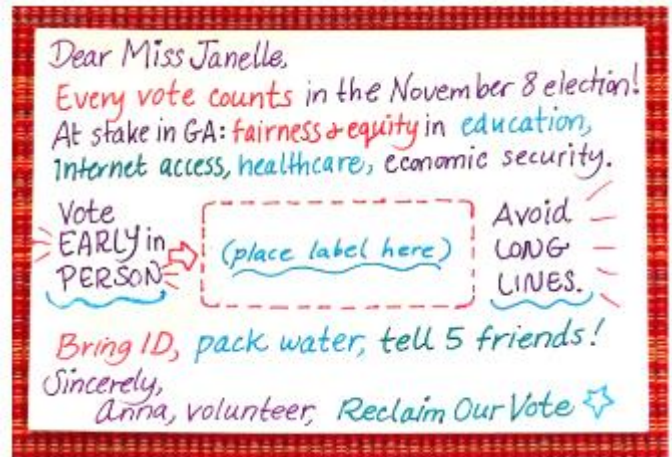 Dear Miss Janelle,
Every vote counts in the November 8 election!
At stake in GA: fairness & equity in education,
Internet access, healthcare, economic security.
Vote
EARLY in
PERSON
(place label here)
Avoid
LONG
LINES.
Bring ID, pack water, tell 5 friends!
Sincerely,
Anna, volunteer, Reclaim Our Vote